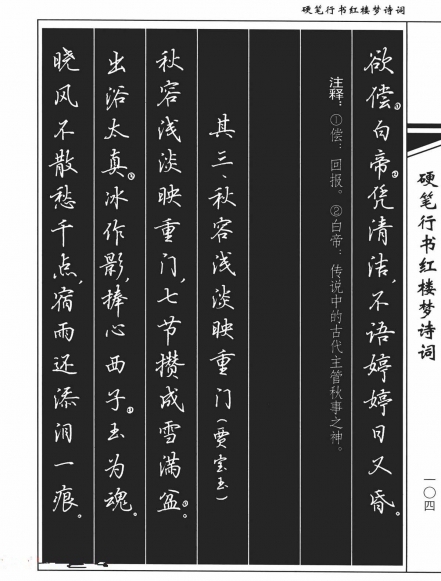 硬笔行书红楼梦诗词
欲偿①白帝②凭清洁，不语婷婷日又昏。
注释：①偿：回报。②白帝：传说中的古代主管秋事之神。
其三、秋容浅淡映重门（贾宝玉）
秋容浅淡映重门，七节攒成雪满盆①。
出浴太真②冰作影，捧心西子③玉为魂。
晓风不散愁千点，宿雨还添泪一痕。
硬笔行书红楼梦诗词
一〇四